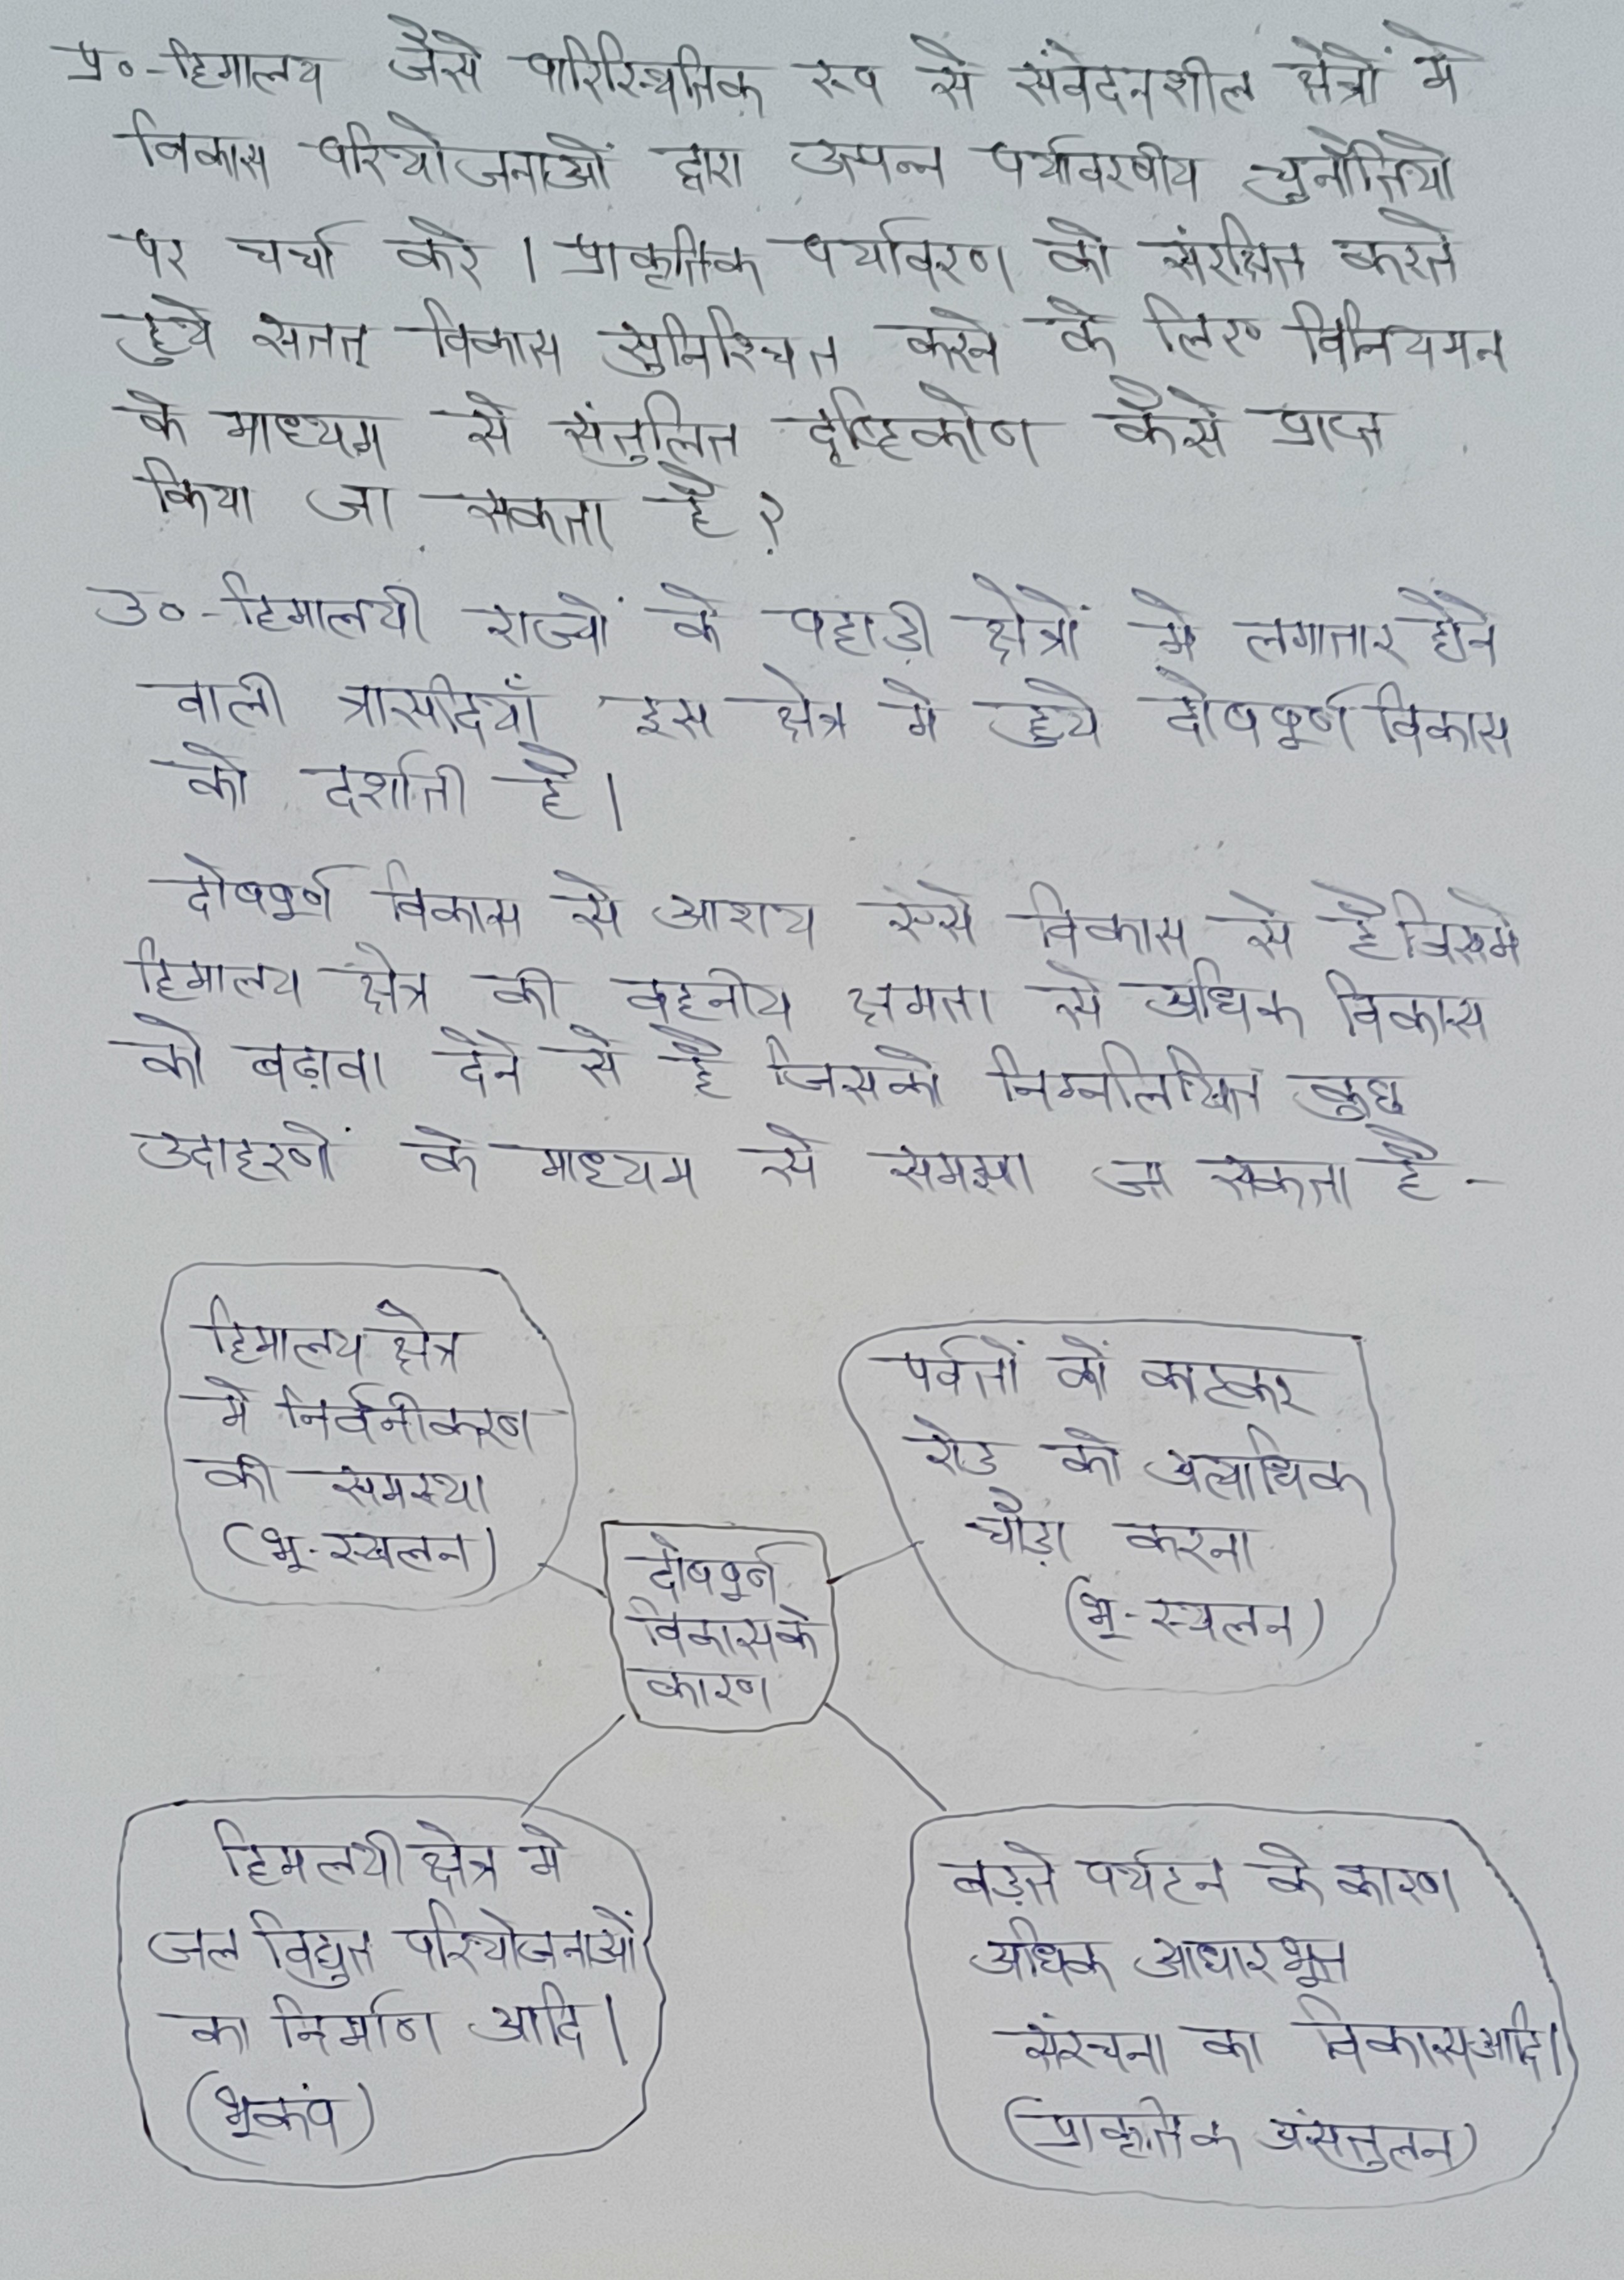 प्र०-हिमालय जैसे पारिस्थितिक रूप से संवेदनशील क्षेत्रों में
विकास परियोजनाओं द्वारा उत्पन्न पर्यावरणीय चुनौतियो
पर चर्चा करे। प्राकृतिक पर्यावरण को संरक्षित करते
हुये सतत् विकास सुनिश्चित करने के लिए विनियमन
के माध्यम से संतुलित दृष्टिकोण कैसे प्राप्त
किया जा सकता है?
उ०-हिमालयी राज्यों के पहाड़ी क्षेत्रों मे लगातार होने
वाली त्रासदियाँ इस क्षेत्र मे हुये दोषपूर्ण विकास
को दर्शाती है।
दोषपूर्ण विकास से आशय ऐसे विकास से है जिसमे
हिमालय क्षेत्र की वहनीय क्षमता से अधिक विकास
को बढ़ावा देने से है जिसको निम्नलिखित कुछ
उदाहरणों के माध्यम से समझा जा सकता है-
हिमालय क्षेत्र
मे निर्वनीकरण
की समस्या
(भू-स्खलन)
पर्वतों कों काटकर
रोड को अत्याधिक
चौड़ा करना
(भू-स्खलन)
दोषपूर्ण
विकास के
कारण
हिमलयी क्षेत्र मे
जल विद्युत परियोजनाओं
का निर्माण आदि।
(भूकंप)
बड़ते पर्यटन के कारण
अधिक आधारभूत
संरचना का विकास आदि।
(प्राकृतिक असंतुलन)